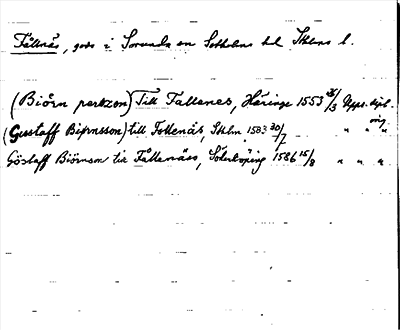 Fållnäs, gods i Sorunda sn Sotholms hd Sthlms l.
(Biörn perszon) Till Fallenes, Häringe 1553 26/3 Upps. dipl. orig.
(Gustaff Biörnsson) till Follenäs, Sthlm 1583 30/7 " " "
Göstaff Biörnson till Fållenäss, Söderköping 1586 15/8 " " "